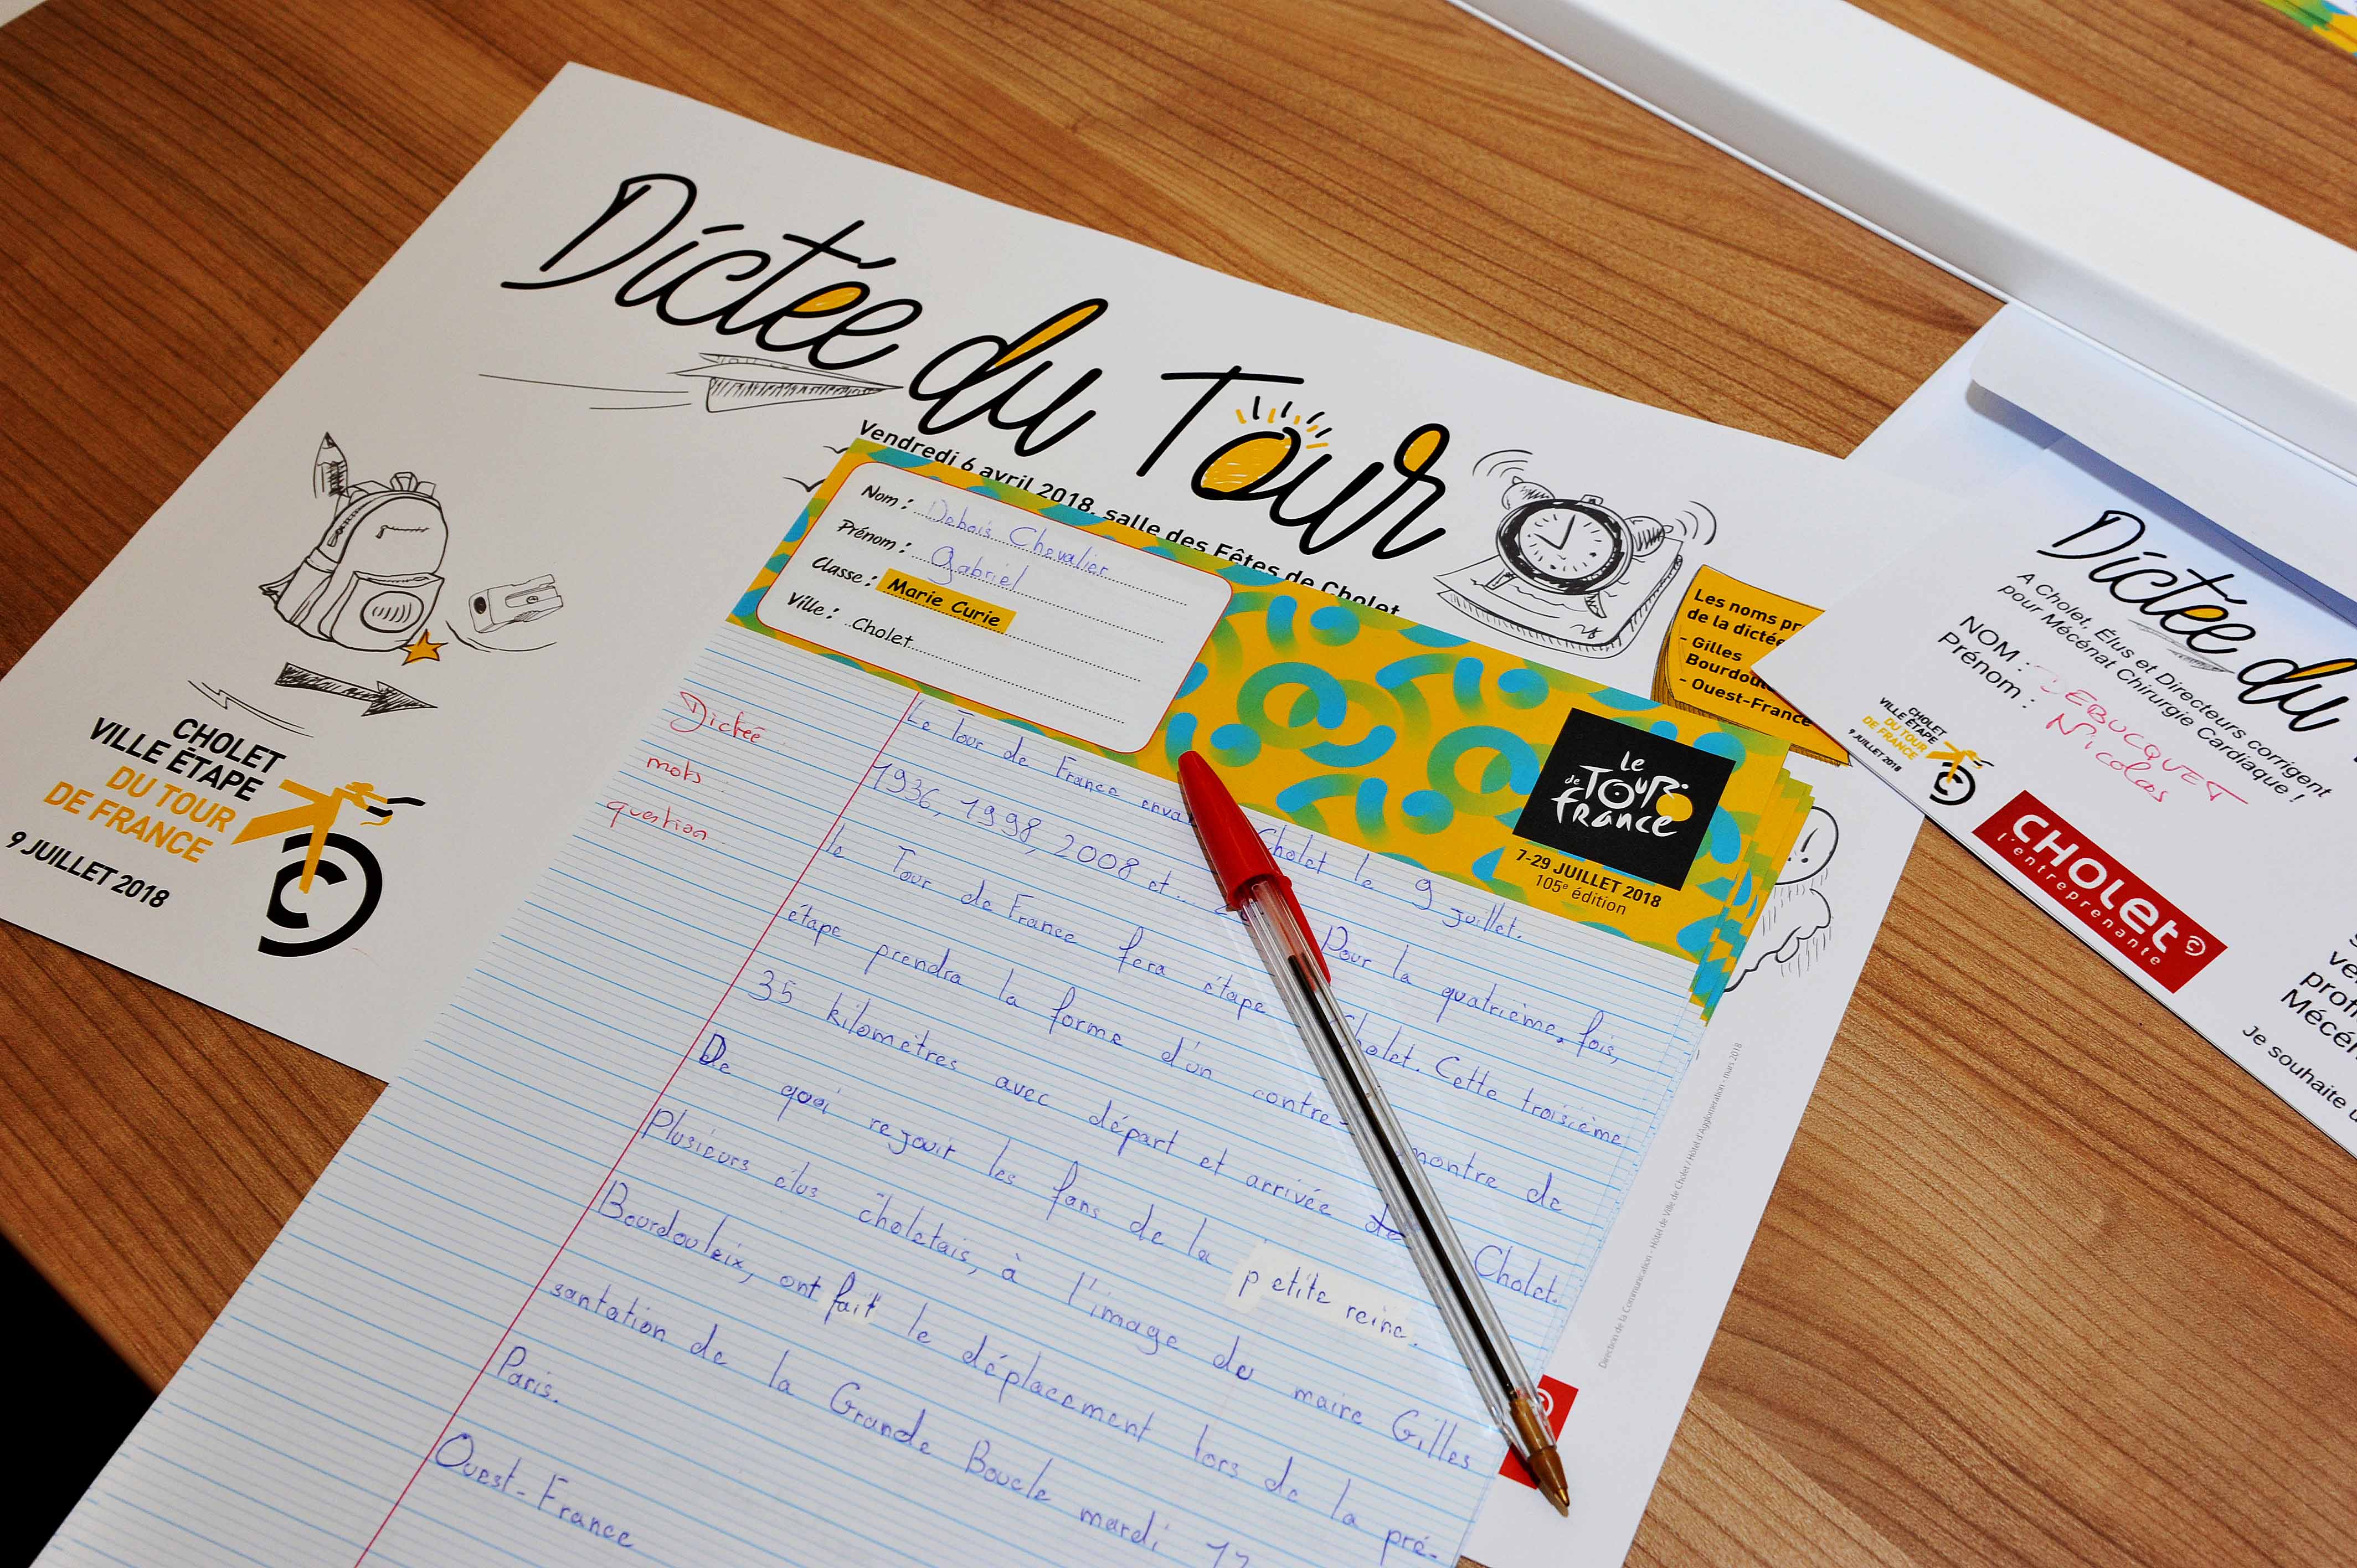 Dictée du Tour
Vendredi 6 avril 2018, salle des Fêtes de Cholet
Les noms
de la dictée
- Gilles
- Ouest-France
CHOLET
VILLE ÉTAPE
DU TOUR
DE FRANCE
9 JUILLET 2018
Nom : Debois Chevalier
Prénom : Gabriel
Classe : Marie Curie
Ville : Cholet
le
de
TOUR
france
7-29 JUILLET 2018
105e édition
Dictée
mots
question
Le Tour de France Cholet le 9 juillet.
1936, 1998, 2008 et.... Pour la quatrième, fois,
le Tour de France fera étape Cholet. Cette troisième
étape prendra la forme d'un contre- montre de
35 kilomètres avec départ et arrivée de Cholet.
De quoi rejouir les fans de la petite reine.
Plusieurs élus choletais, à l'image du maire Gilles
Bourdouleix, ont fait le déplacement lors de la pré-
santation de la Grande Boucle mardi
Paris.
Ouest-France
Direction de la Communication - Hôtel de Ville de Cholet / Hôtel d'Agglomération - mars 2018
Dictée du
A Cholet, Élus et Directeurs corrigent
pour Mécénat Chirurgie Cardiaque !
NOM : DEBUCQUET
Prénom : Nicolas
CHOLET
VILLE ÉTAPE
DU TOUR
DE FRANCE
9 JUILLET 2018
CHOLET
l'entreprenante
Je souhaite